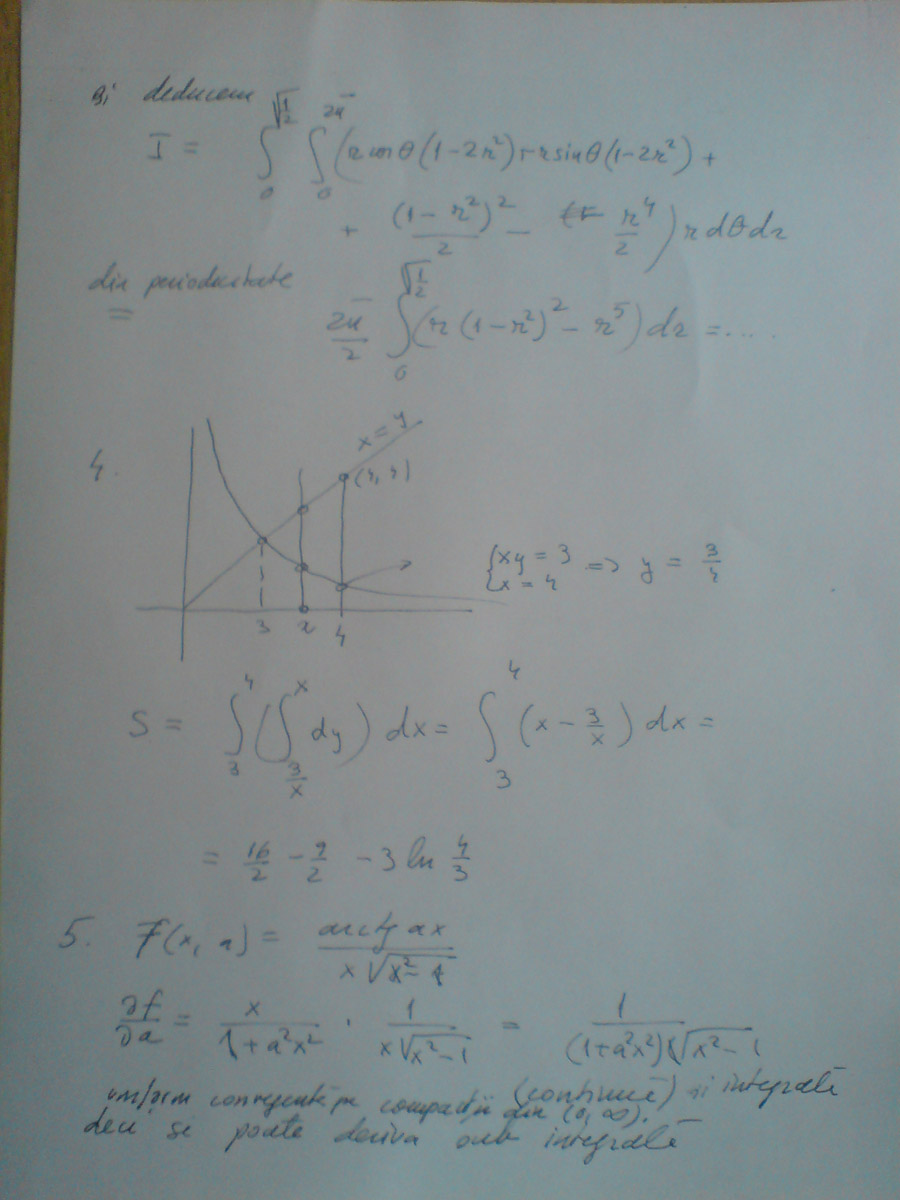 și deducem
I = ∫_0^{√(1/2)} ∫_0^{2π} (r cos θ (1 - 2r²) + r sin θ (1 - 2r²) +
+ (1 - r²)²/2 - r⁴/2) r dθ dr
din periodicitate
= 2π/2 ∫_0^{√(1/2)} (r (1 - r²)² - r⁵) dr = ....
4.
x = y
(4, 4)
3 x 4
{xy = 3
x = 4 => y = 3/4
S = ∫_3^4 (∫_{3/x}^x dy) dx = ∫_3^4 (x - 3/x) dx =
= 16/2 - 9/2 - 3 ln 4/3
5. F(x, a) = arctg ax / x√(x² - 1)
∂f/∂a = x/(1 + a²x²) · 1/(x√(x² - 1)) = 1/((1 + a²x²)√(x² - 1))
(continuă) și integrală
uniform convergentă pe compacții din (0, ∞).
deci se poate deriva sub integrală